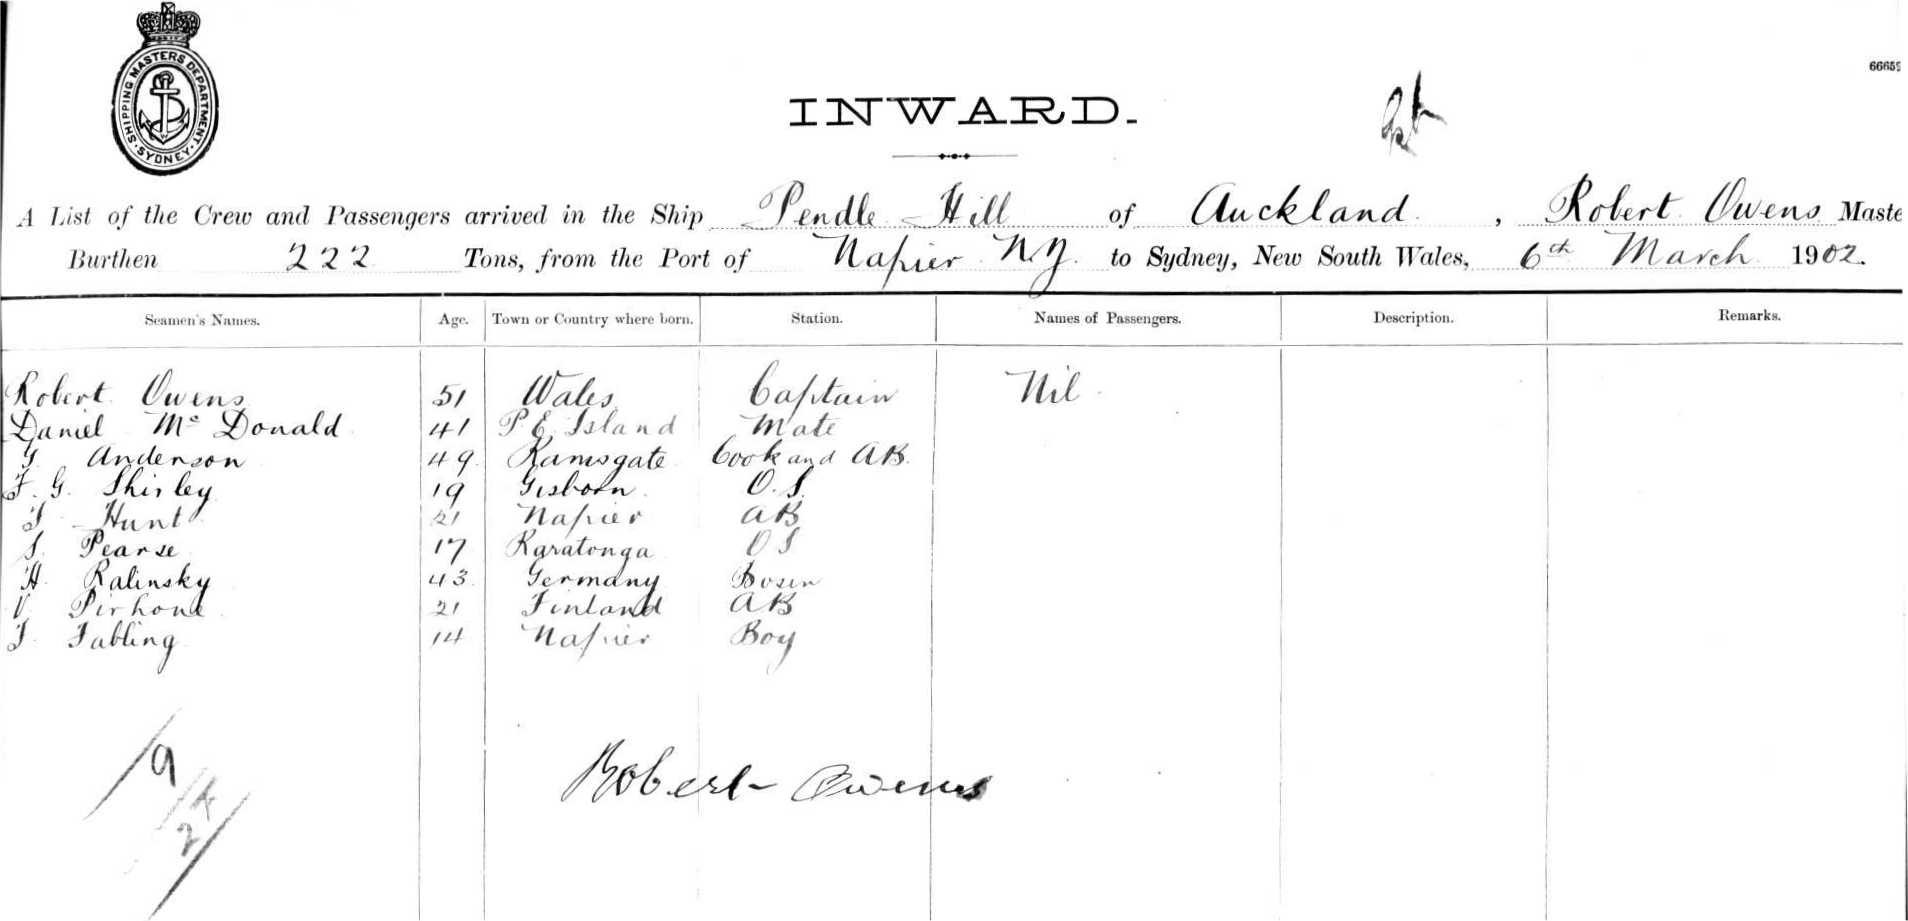 SHIPPING MASTERS DEPARTMENT. SYDNEY.
66659
INWARD.
A List of the Crew and Passengers arrived in the Ship Pendle Hill of Auckland, Robert Owens Maste
Burthen 222 Tons, from the Port of Napier N.Z. to Sydney, New South Wales, 6th March 1902.
Seamen's Names. Age. Town or Country where born. Station. Names of Passengers. Description. Remarks.
Robert Owens 51 Wales Captain Nil
Daniel Mc Donald 41 P E Island Mate
G Anderson 49 Ramsgate Cook and AB.
F. G. Shirley 19 Gisborn O.S.
T Hunt 21 Napier AB
S. Pearse 17 Raratonga O S
H. Kalinsky 43 Germany Bosun
V Pirhone 21 Finland AB
T. Tabling 14 Napier Boy
9
Robert Owens
2